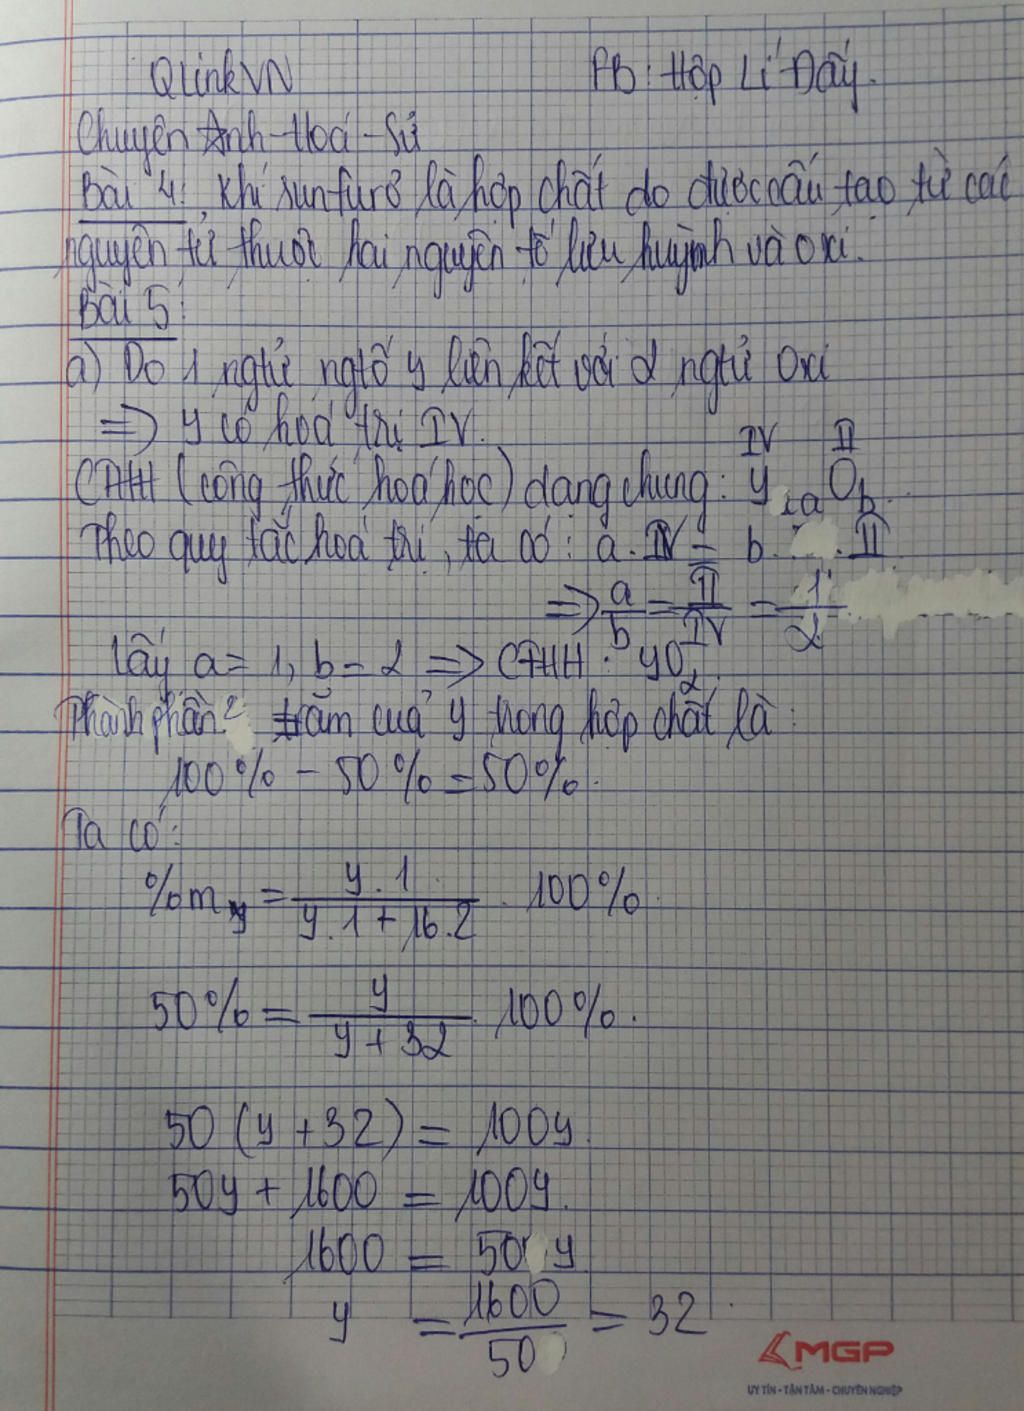 QLinkVN FB: Hợp Lí Đấy.
Chuyên Anh-Hoá-Sử
Bài 4: Khí sunfurơ là hợp chất do được cấu tạo từ các
nguyên tử thuộc hai nguyên tố lưu huỳnh và oxi.
Bài 5:
a) Do 1 ngtử ngtố y liên kết với 2 ngtử Oxi
=> y có hoá trị IV.
IV II
CTHH (công thức hoá học) dạng chung: y a O b.
Theo quy tắc hoá trị, ta có: a. IV = b. II
=> a/b = II/IV = 1/2
Lấy a = 1, b = 2 => CTHH: yO₂.
Thành phần trăm của y trong hợp chất là:
100% - 50% = 50%.
Ta có:
%m y = y.1 / y.1 + 16.2 . 100%.
50% = y / y + 32 . 100%.
50 (y + 32) = 100y.
50y + 1600 = 100y.
1600 = 50 y
y = 1600 / 50 = 32.
MGP
UY TÍN - TẬN TÂM - CHUYÊN NGHIỆP